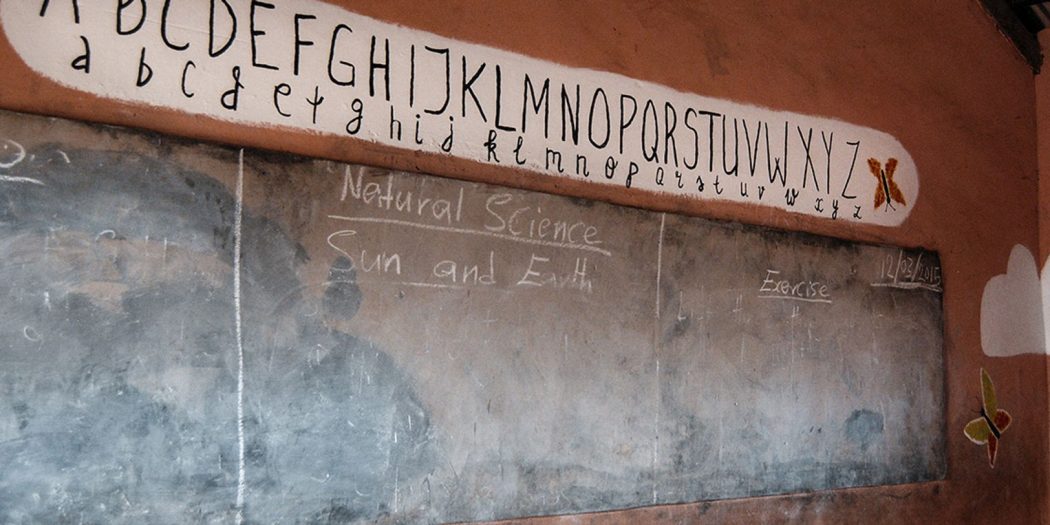 A B C D E F G H I J K L M N O P Q R S T U V W X Y Z
a b c d e f g h i j k l m n o p q r s t u v w x y z
Natural Science
Sun and Earth
12/03/2015
Exercise